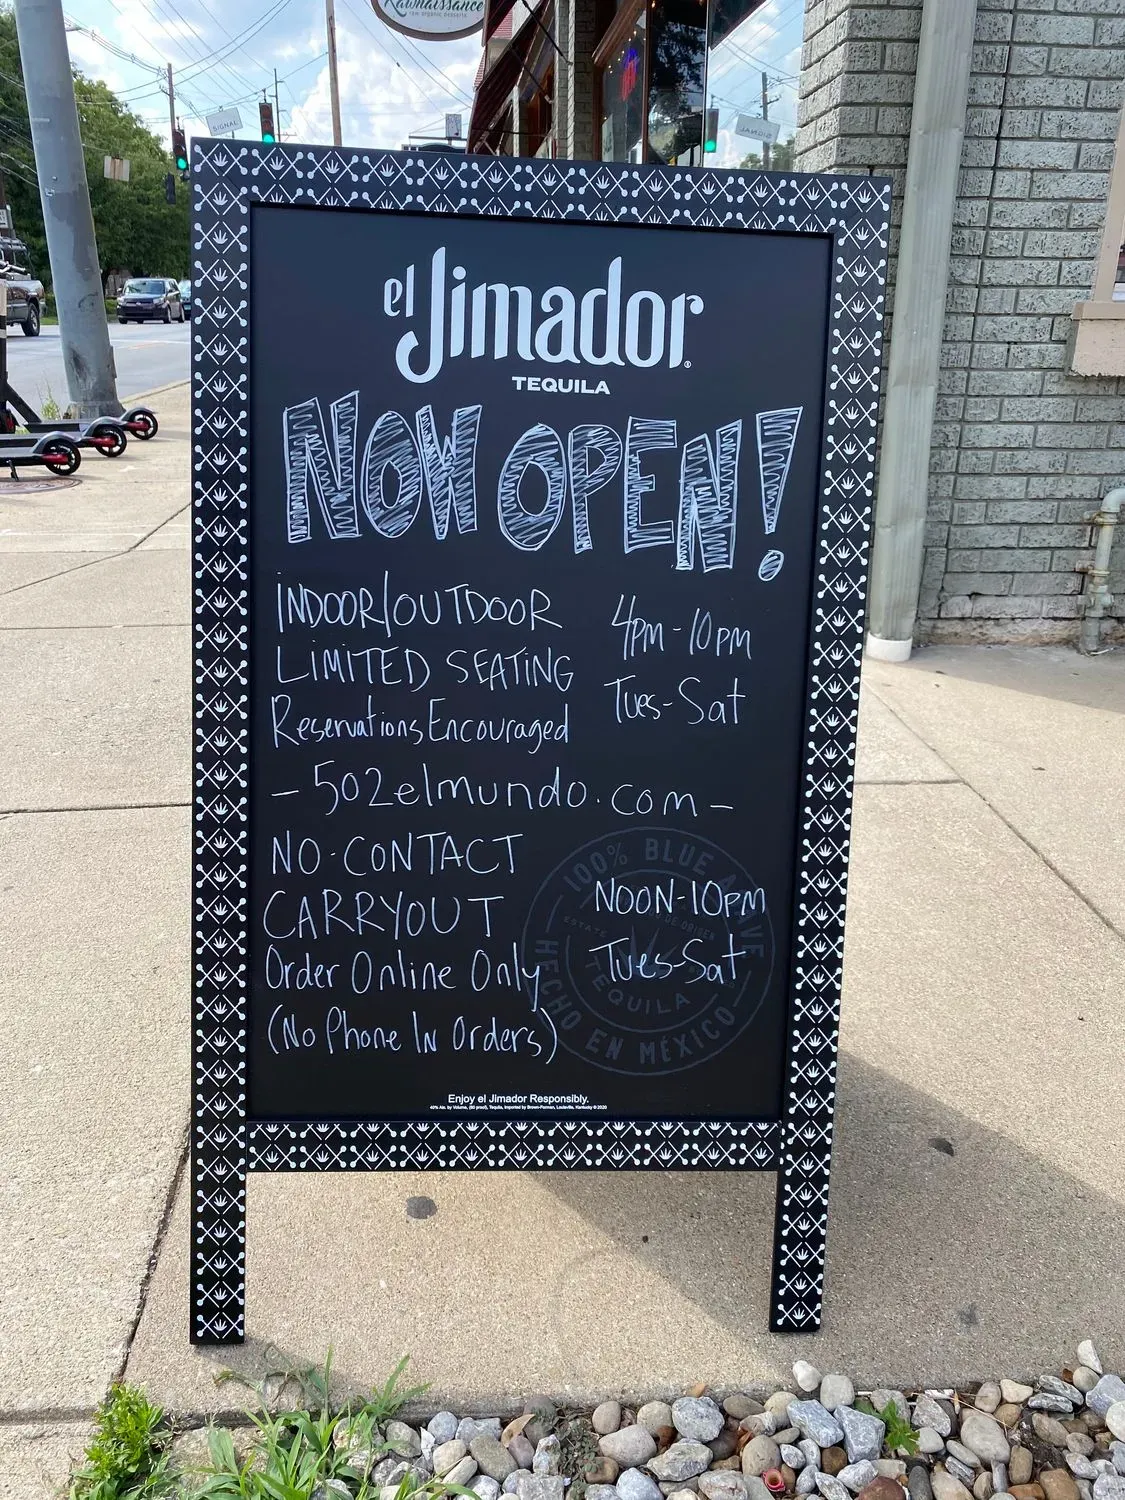 Rawnaissance
raw organic desserts
SIGNAL
el Jimador®
TEQUILA
NOW OPEN!
INDOOR/OUTDOOR
LIMITED SEATING
Reservations Encouraged
4PM-10PM
Tues-Sat
- 502elmundo.com -
NO-CONTACT
CARRYOUT
Order Online Only
(No Phone In Orders)
NOON-10PM
Tues-Sat
100% BLUE AGAVE
HECHO EN MÉXICO
TEQUILA
Enjoy el Jimador Responsibly.
40% Alc. by Volume, (80 proof), Tequila, Imported by Brown-Forman, Louisville, Kentucky © 2020